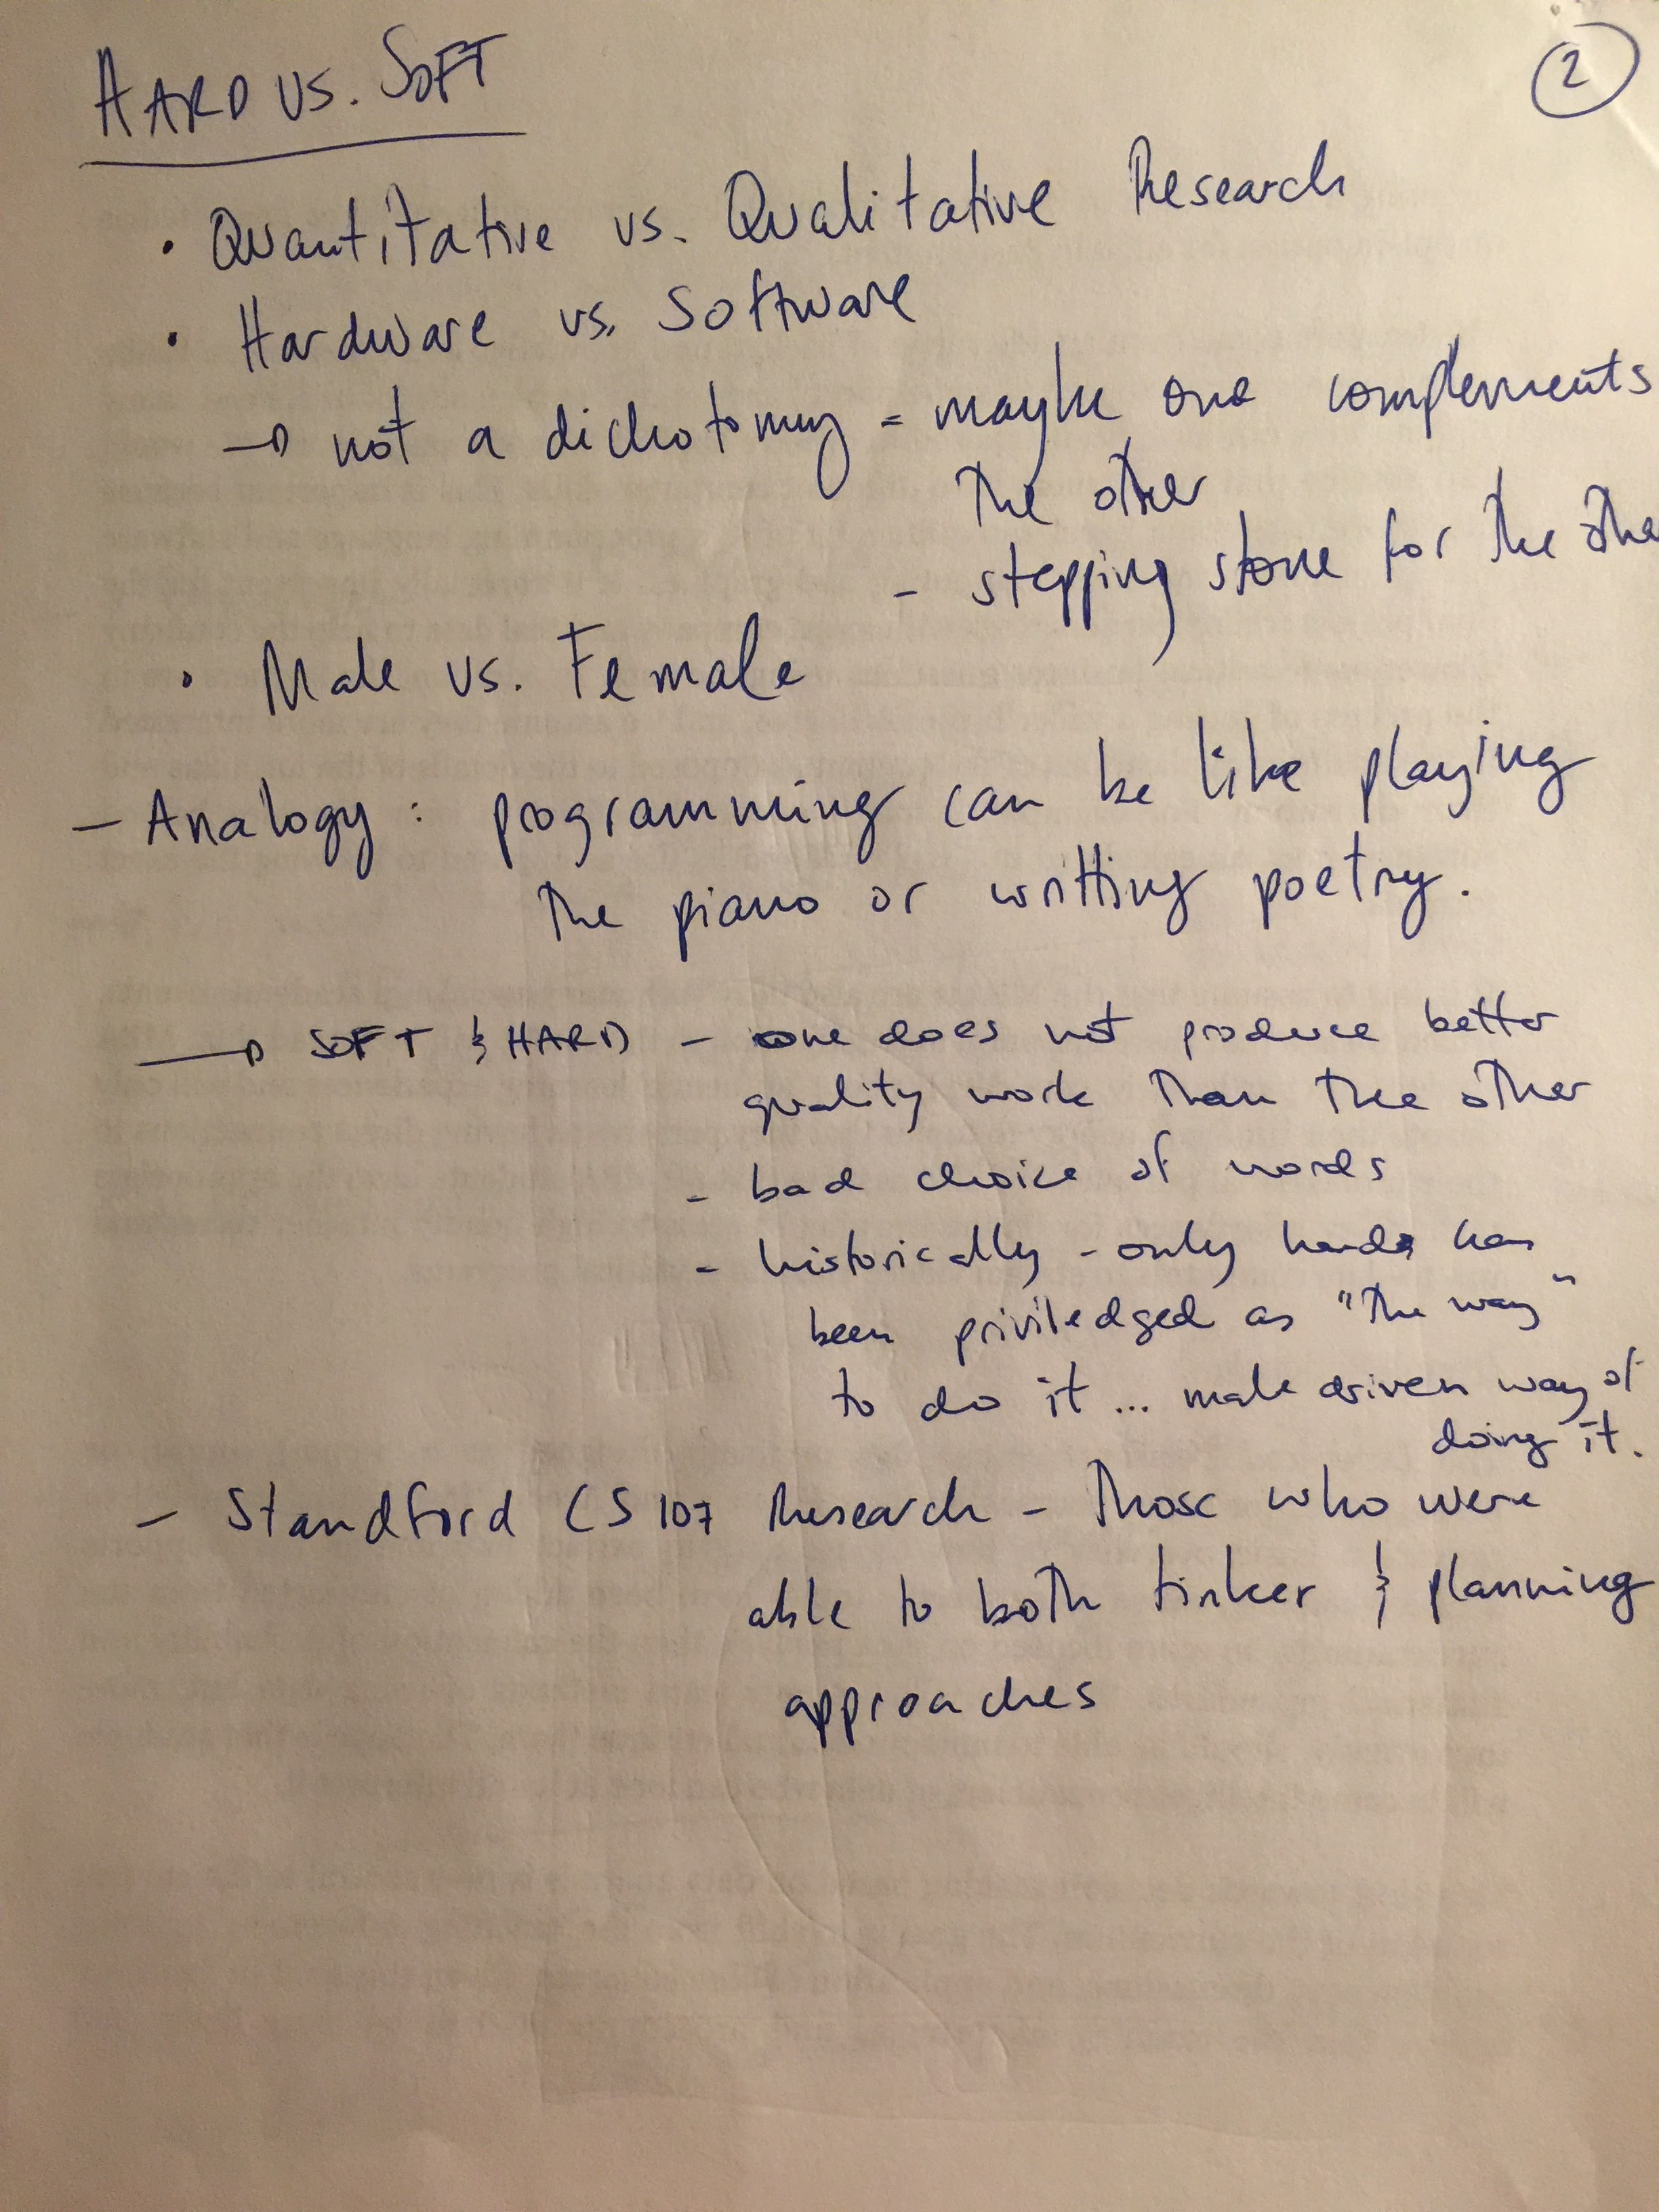 HARD VS. SOFT
2
• Quantitative vs. Qualitative Research
• Hardware vs. Software
→ not a dichotomy - maybe one complements
the other
- stepping stone for the othe
• Male vs. Female
- Analogy : programming can be like playing
the piano or writting poetry.
→ SOFT & HARD - one does not produce better
quality work than the other
- bad choice of words
- historically - only hard has
been priviledged as "the way"
to do it... male driven way of
doing it.
- Standford CS 107 Research - Those who were
able to both tinker & planning
approaches